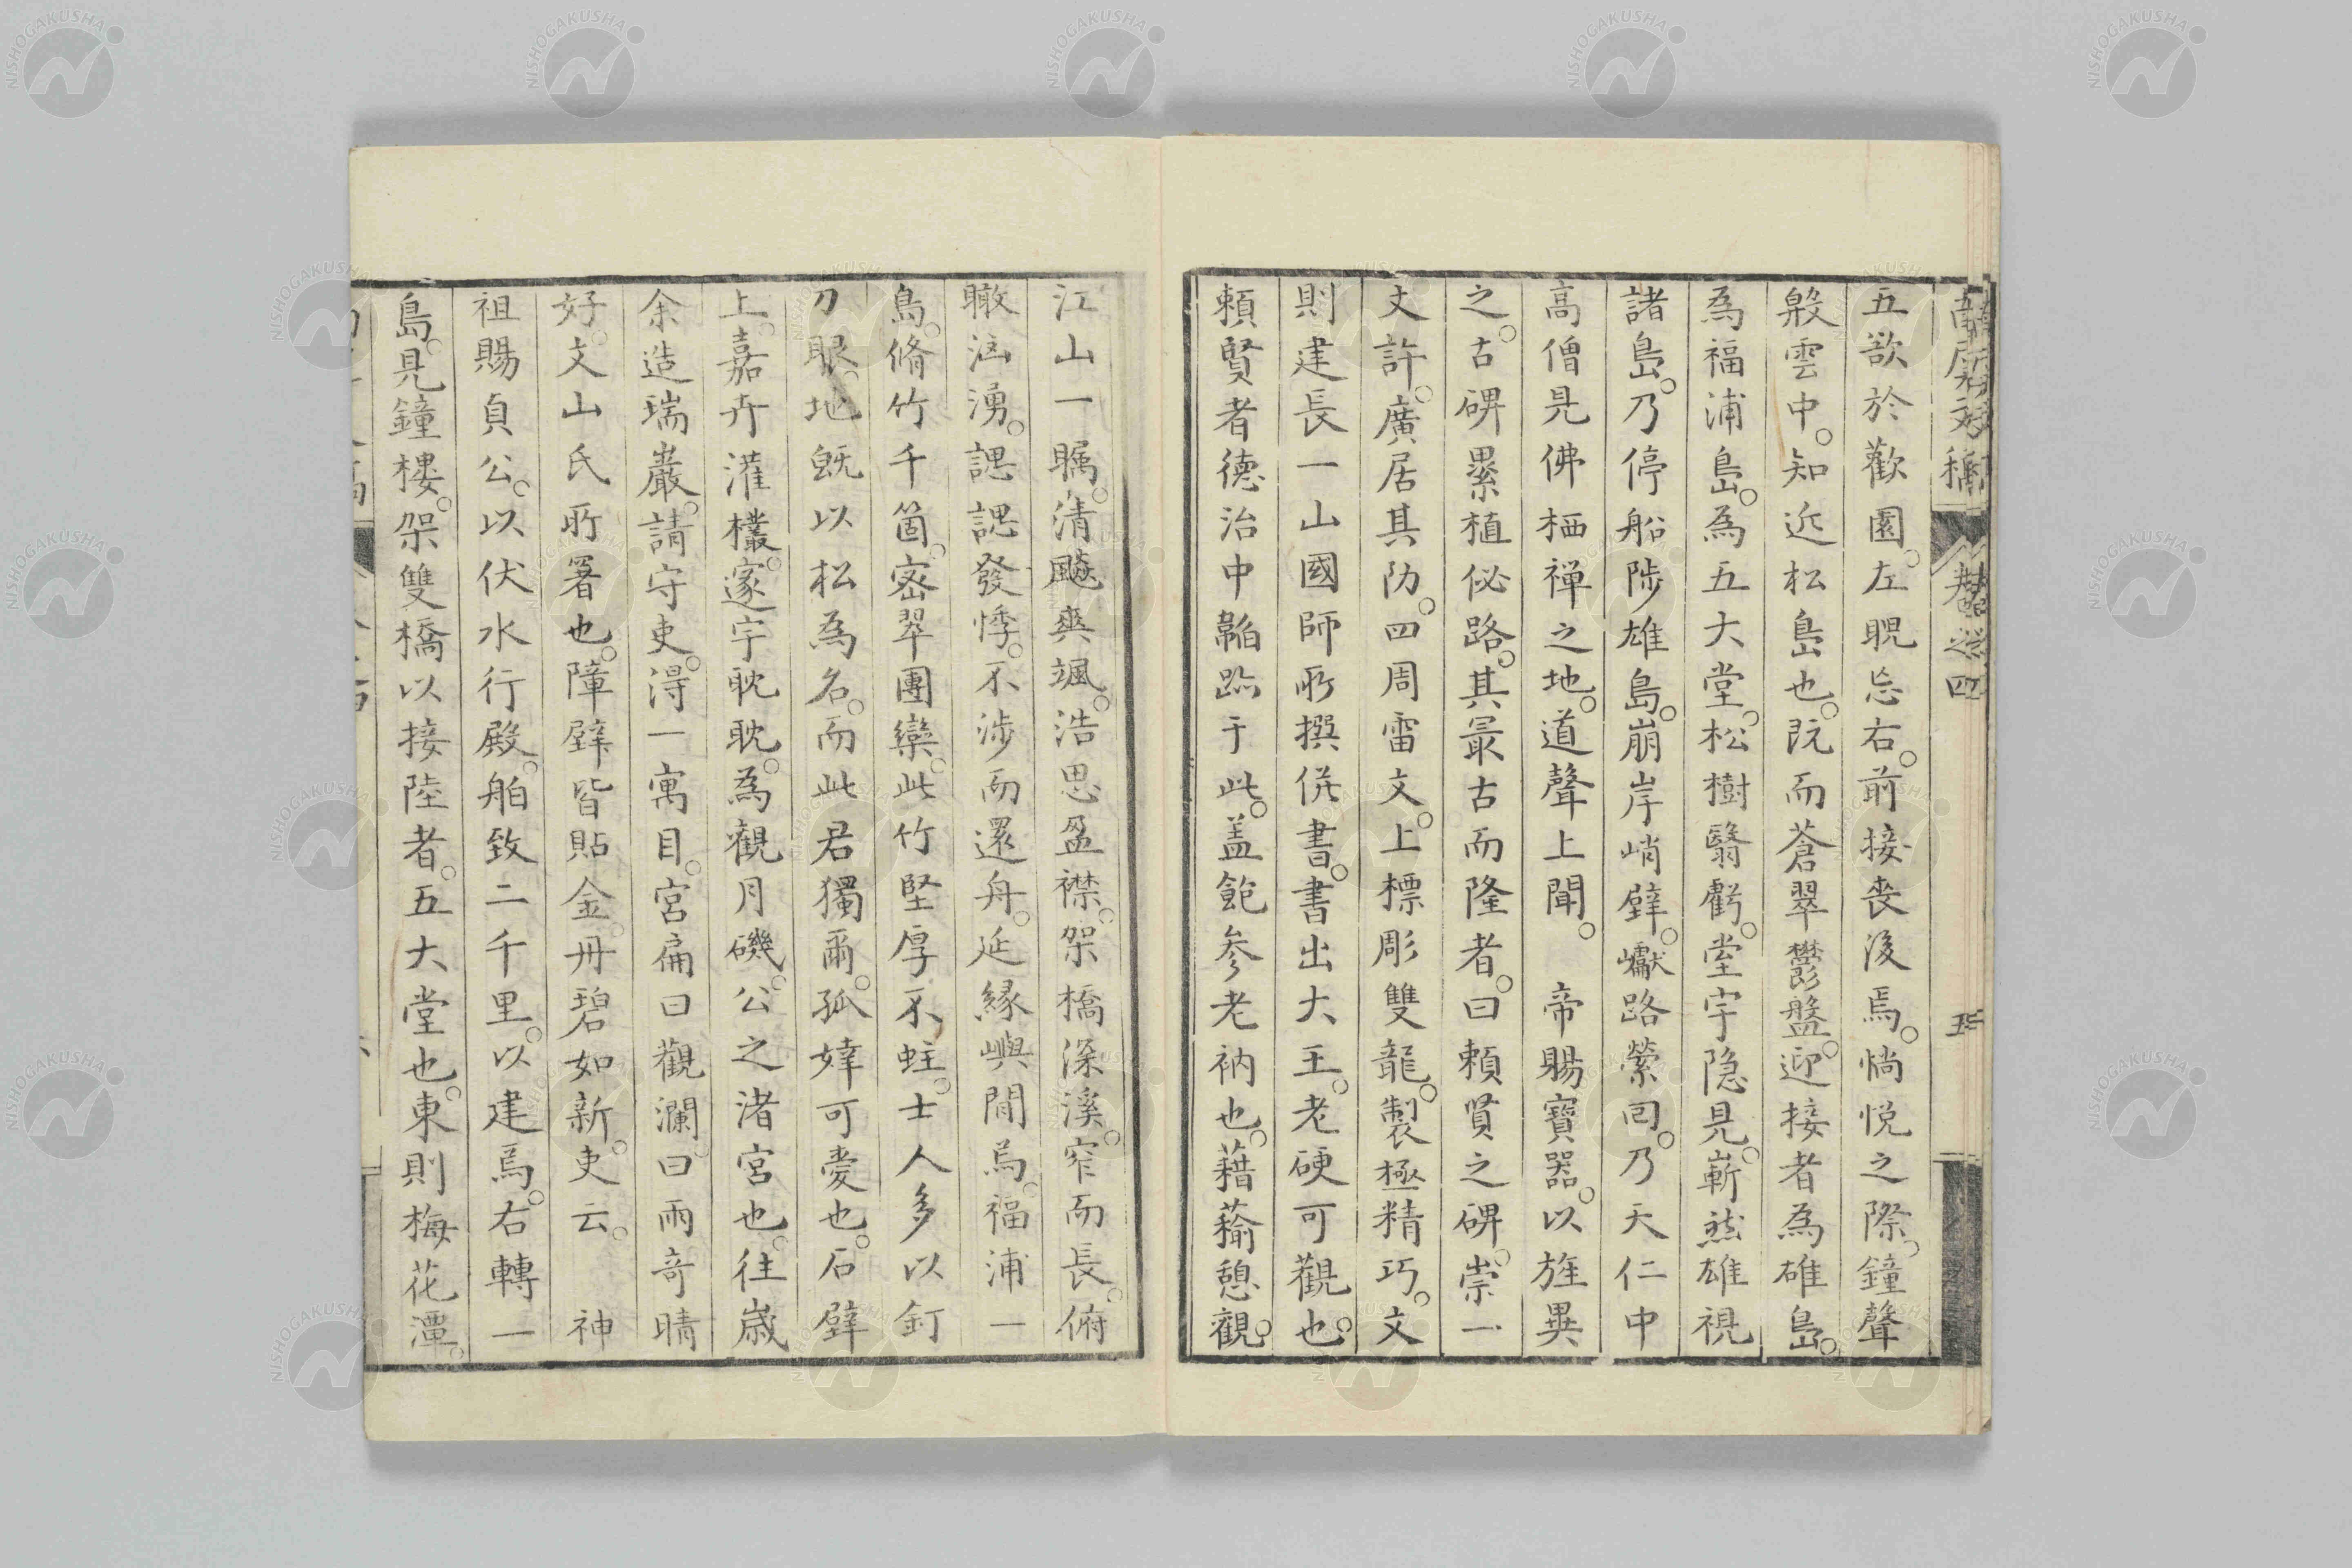 五欲於歡園。左眤忘右。前接喪後焉。惝悦之際。鐘聲
殷雲中。知近松島也。既而蒼翠鬱盤。迎接者為雄島。
為福浦島。為五大堂。松樹翳虧。堂宇隐見。嶄然雄視
諸島。乃停船陟雄島。崩岸峭壁。巘路縈囘。乃天仁中
高僧見佛栖禅之地。道聲上聞。　帝賜寶器。以旌異
之。古碑累植佖路。其最古而隆者。曰賴賢之碑。崇一
丈許。廣居其仂。四周雷文。上標彫雙龍。製極精巧。文
則建長一山國師所撰倂書。書出大王。老硬可觀也。
賴賢者德治中韜跡于此。盖飽参老衲也。藉蕍憩觀。
江山一矚。清飈爽颯。浩思盈襟。架橋深溪。窄而長。俯
瞰洶湧。諰諰發悸。不涉而還舟。延緣嶼間焉。福浦一
島。脩竹千箇。密翠團欒。此竹堅厚不蛀。士人多以釘
刀眼。地既以松為名。而此君獨爾。孤婞可愛也。石壁
上。嘉卉灌欉。邃宇耽耽。為觀月磯。公之渚宮也。往歲
余造瑞巖。請守吏。得一寓目。宮扁曰觀瀾。曰雨竒晴
好。文山氏所署也。障壁皆貼金。丹碧如新。吏云。　神
祖賜貞公。以伏水行殿。舶致二千里。以建焉。右轉一
島。見鐘樓。架雙橋以接陸者。五大堂也。東則梅花潭。